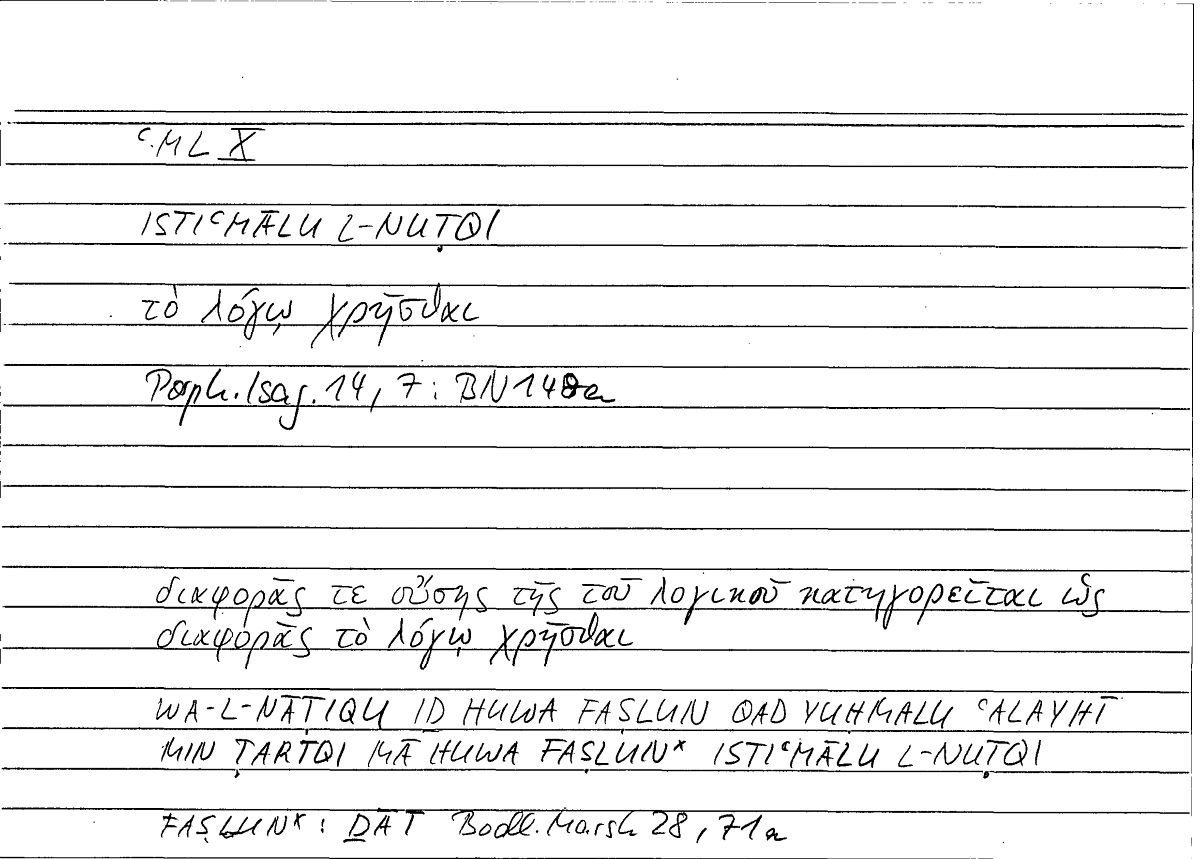 ʿML X
ISTIʿMĀLU L-NUṬQI
τὸ λόγῳ χρῆσθαι
Porph. Isag. 14, 7: BN 148a
διαφορᾶς τε οὔσης τῆς τοῦ λογικοῦ κατηγορεῖται ὡς
διαφορᾶς τὸ λόγῳ χρῆσθαι
WA-L-NĀṬIQU ID HUWA FAṢLUN QAD YUḤMALU ʿALAYHĪ
MIN ṬARĪQI MĀ HUWA FAṢLUN* ISTIʿMĀLU L-NUṬQI
FAṢLUN*: ḎĀT Bodl. Marsh 28, 71a